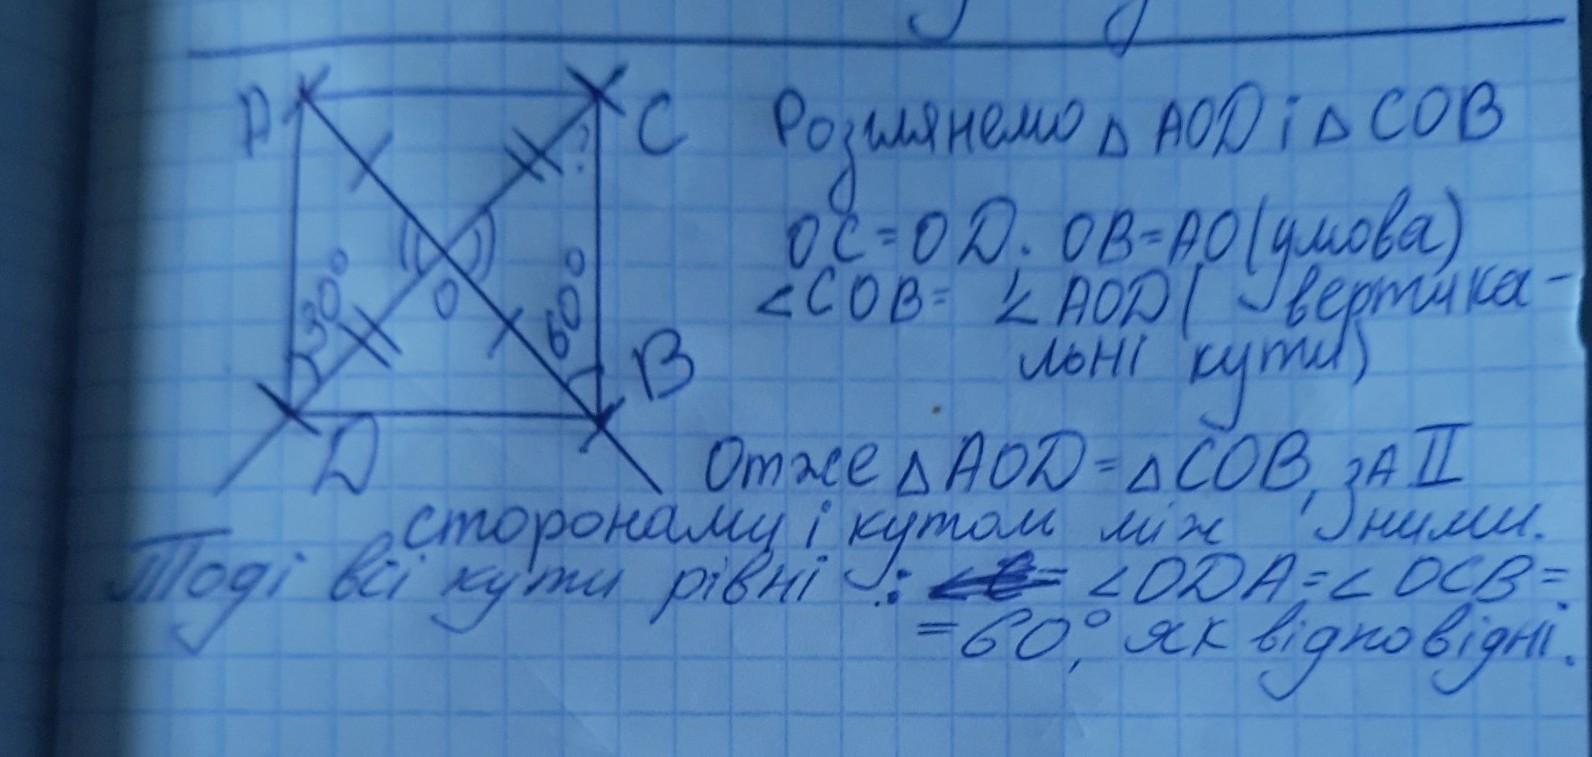 A
C
?
30°
O
60°
B
D
Розглянемо △ AOD і △ COB
OC = OD. OB = AO (умова)
∠COB = ∠AOD (вертика-
льні кути)
Отже △ AOD = △ COB, за II
сторонами і кутом між ними.
Тоді всі кути рівні : ∠ODA = ∠OCB =
= 60°, як відповідні.